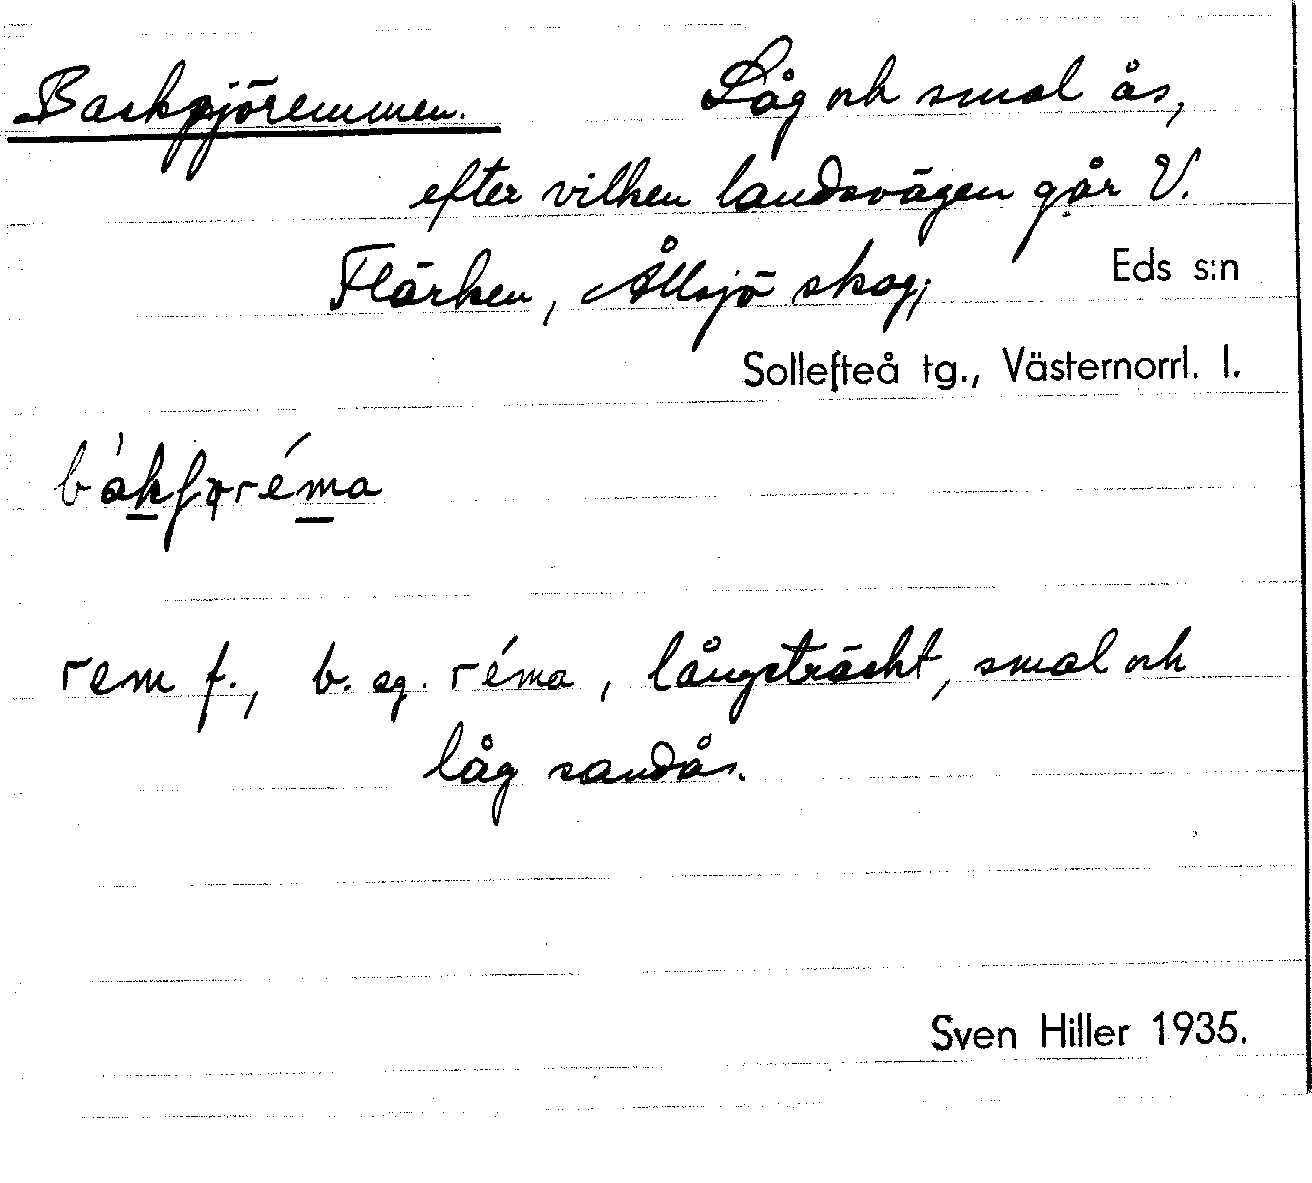 Backsjöremmen. Låg och smal ås,
efter vilken landsvägen går V.
Flärken, Ållsjö skog; Eds s:n
Sollefteå tg., Västernorrl. l.
rem f., b. sg. réma, långsträckt, smal och
låg sandås.
Sven Hiller 1935.